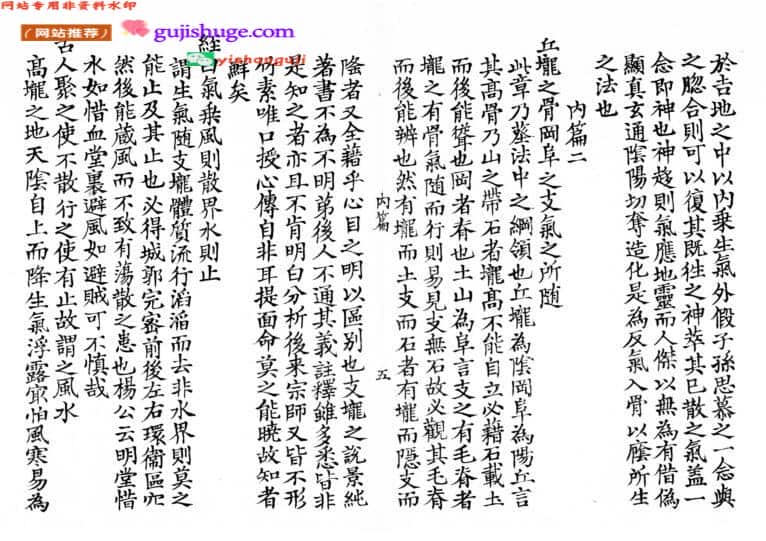 网站专用非资料水印
(网站推荐)
gujishuge.com
yishanguji
於吉地之中以內乗生氣外假子孫思慕之一念與
之脗合則可以復其既徃之神萃其已散之氣盖一
念即神也神趍則氣應地靈而人傑以無為有借偽
顯真玄通陰陽切奪造化是為反氣入骨以廕所生
之法也
內篇二
丘壠之骨岡阜之支氣之所随
此章乃塟法中之綱領也丘壠為陰岡阜為陽丘言
其髙骨乃山之帶石者壠髙不能自立必藉石載土
而後能聳也岡者脊也土山為阜言支之有毛脊者
壠之有骨氣随而行則易見支無石故必觀其毛脊
而後能辨也然有壠而土支而石者有壠而隱支而
內篇
五
隆者又全藉乎心目之明以區别也支壠之說景純
著書不為不明第後人不通其義註釋雖多悉皆非
是知之者亦且不肯明白分析後来宗師又皆不形
竹素唯口授心傳自非耳提面命莫之能曉故知者
鮮矣
經曰氣乗風則散界水則止
謂生氣随支壠體質流行滔滔而去非水界則莫之
能止及其止也必得城郭完密前後左右環衞區穴
然後能藏風而不致有蕩散之患也楊公云明堂惜
水如惜血堂裏避風如避賊可不慎哉
古人聚之使不散行之使有止故謂之風水
髙壠之地天陰自上而降生氣浮露㝡怕風寒易為